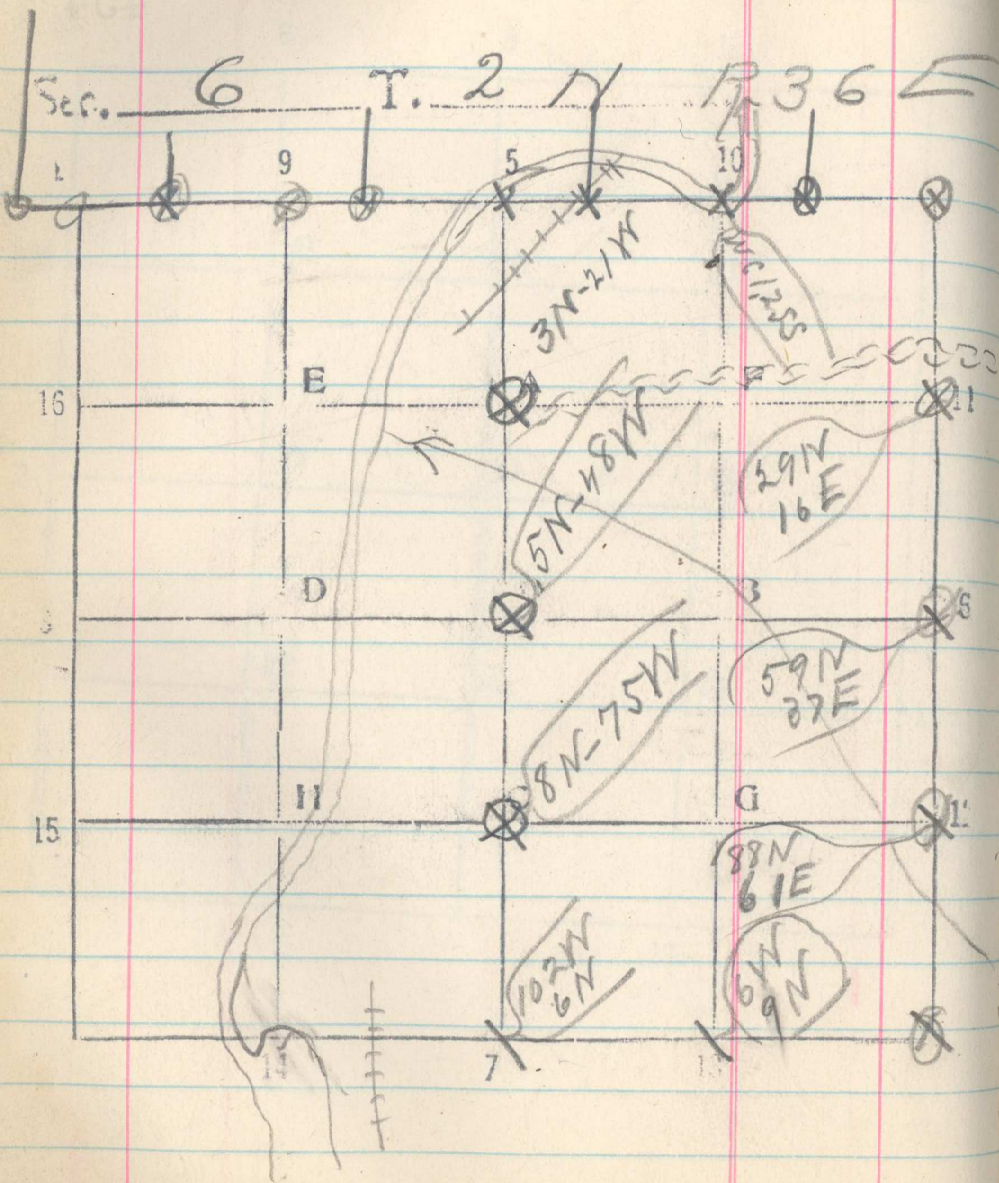 Sec. 6 T. 2 N R 36 E
1 9 5 10
3N-21W
E F
16 11
5N-48W
29N
16E
D B
6
59N
33E
8N-75W
H G
15 12
88N
61E
102W
6N
6W
9N
14 7 13